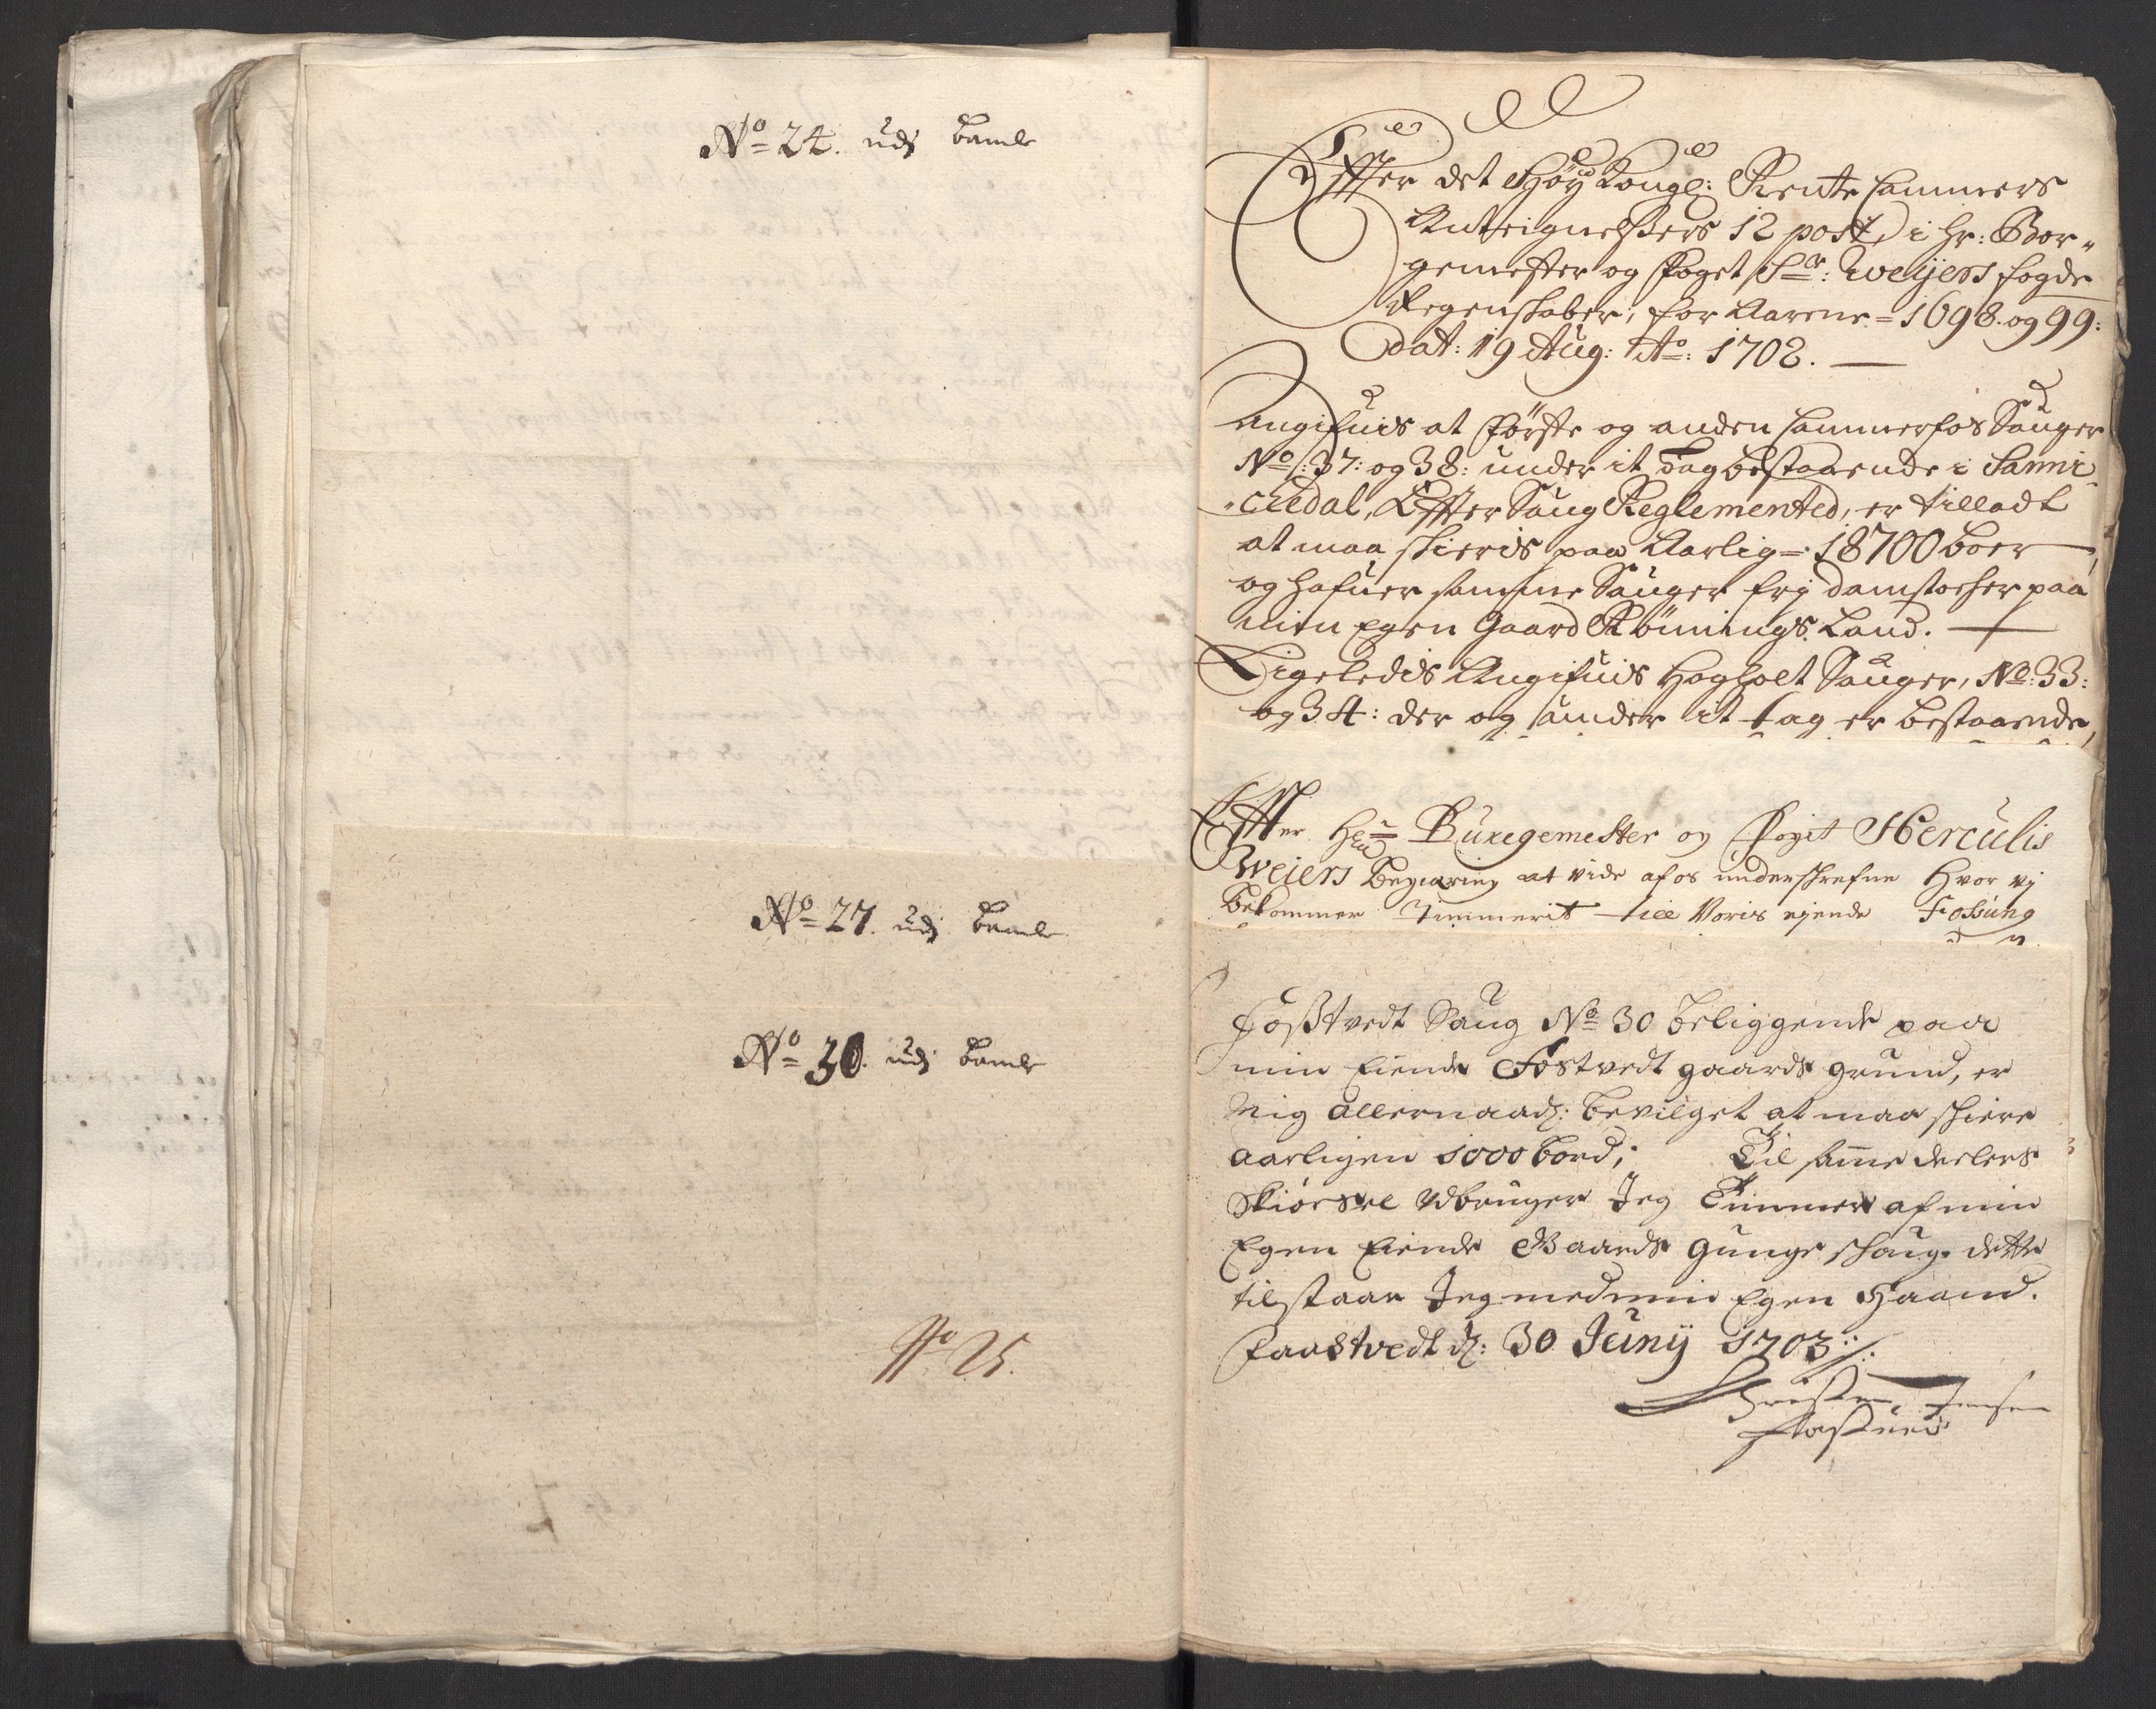 No 24. udj Bamle
No 27. udj Bamle
No 30. udj Bamle
No 25.
Effter det Höy Kongl: Rente Cammers
Anteignelßers 12 post, i Hr: Bor„
gemester og Foget Sr: Weyers fogde
Regenskaber, for Aarene = 1698. og 99:
Dat: 19 Aug: Ao: 1702.
Angifuis at Förste og anden Cammerfos Sauger
No: 37: og 38: under it Tag bestaaende i Sanni„
„chedal, Effter Saug Reglemented, er tilladt
at maa skieris paa Aarlig = 18700 boer
og hafuer samme Sauger frj Damstocher paa
min Egen Gaard Rönnings Land.
Ligeledis Angifuis Hogholt Sauger, No: 33:
og 34: der og under it tag er bestaaende,
Effter Hr Burgemester og Fogit Herculis
Weiers Begiæring at vide af os underschrefne Hvor vj
Bekommer Timmerit till Voris ejende Fossung
Foßtvedt Saug No 30 beliggende paa
min Eiende Fostvedt gaards grund, er
Mig allernaadj: bevilget at maa skiere
aarligen 1000 bord; Til samme deelers
Skiørsel udbruger Jeg Timmer af min
Egen Eiende Gaards Gunge skaug. dette
tilstaar Jeg med min Egen Haand.
Faastvedt d: 30 Junij 1703
Christen Jensen
Fastued